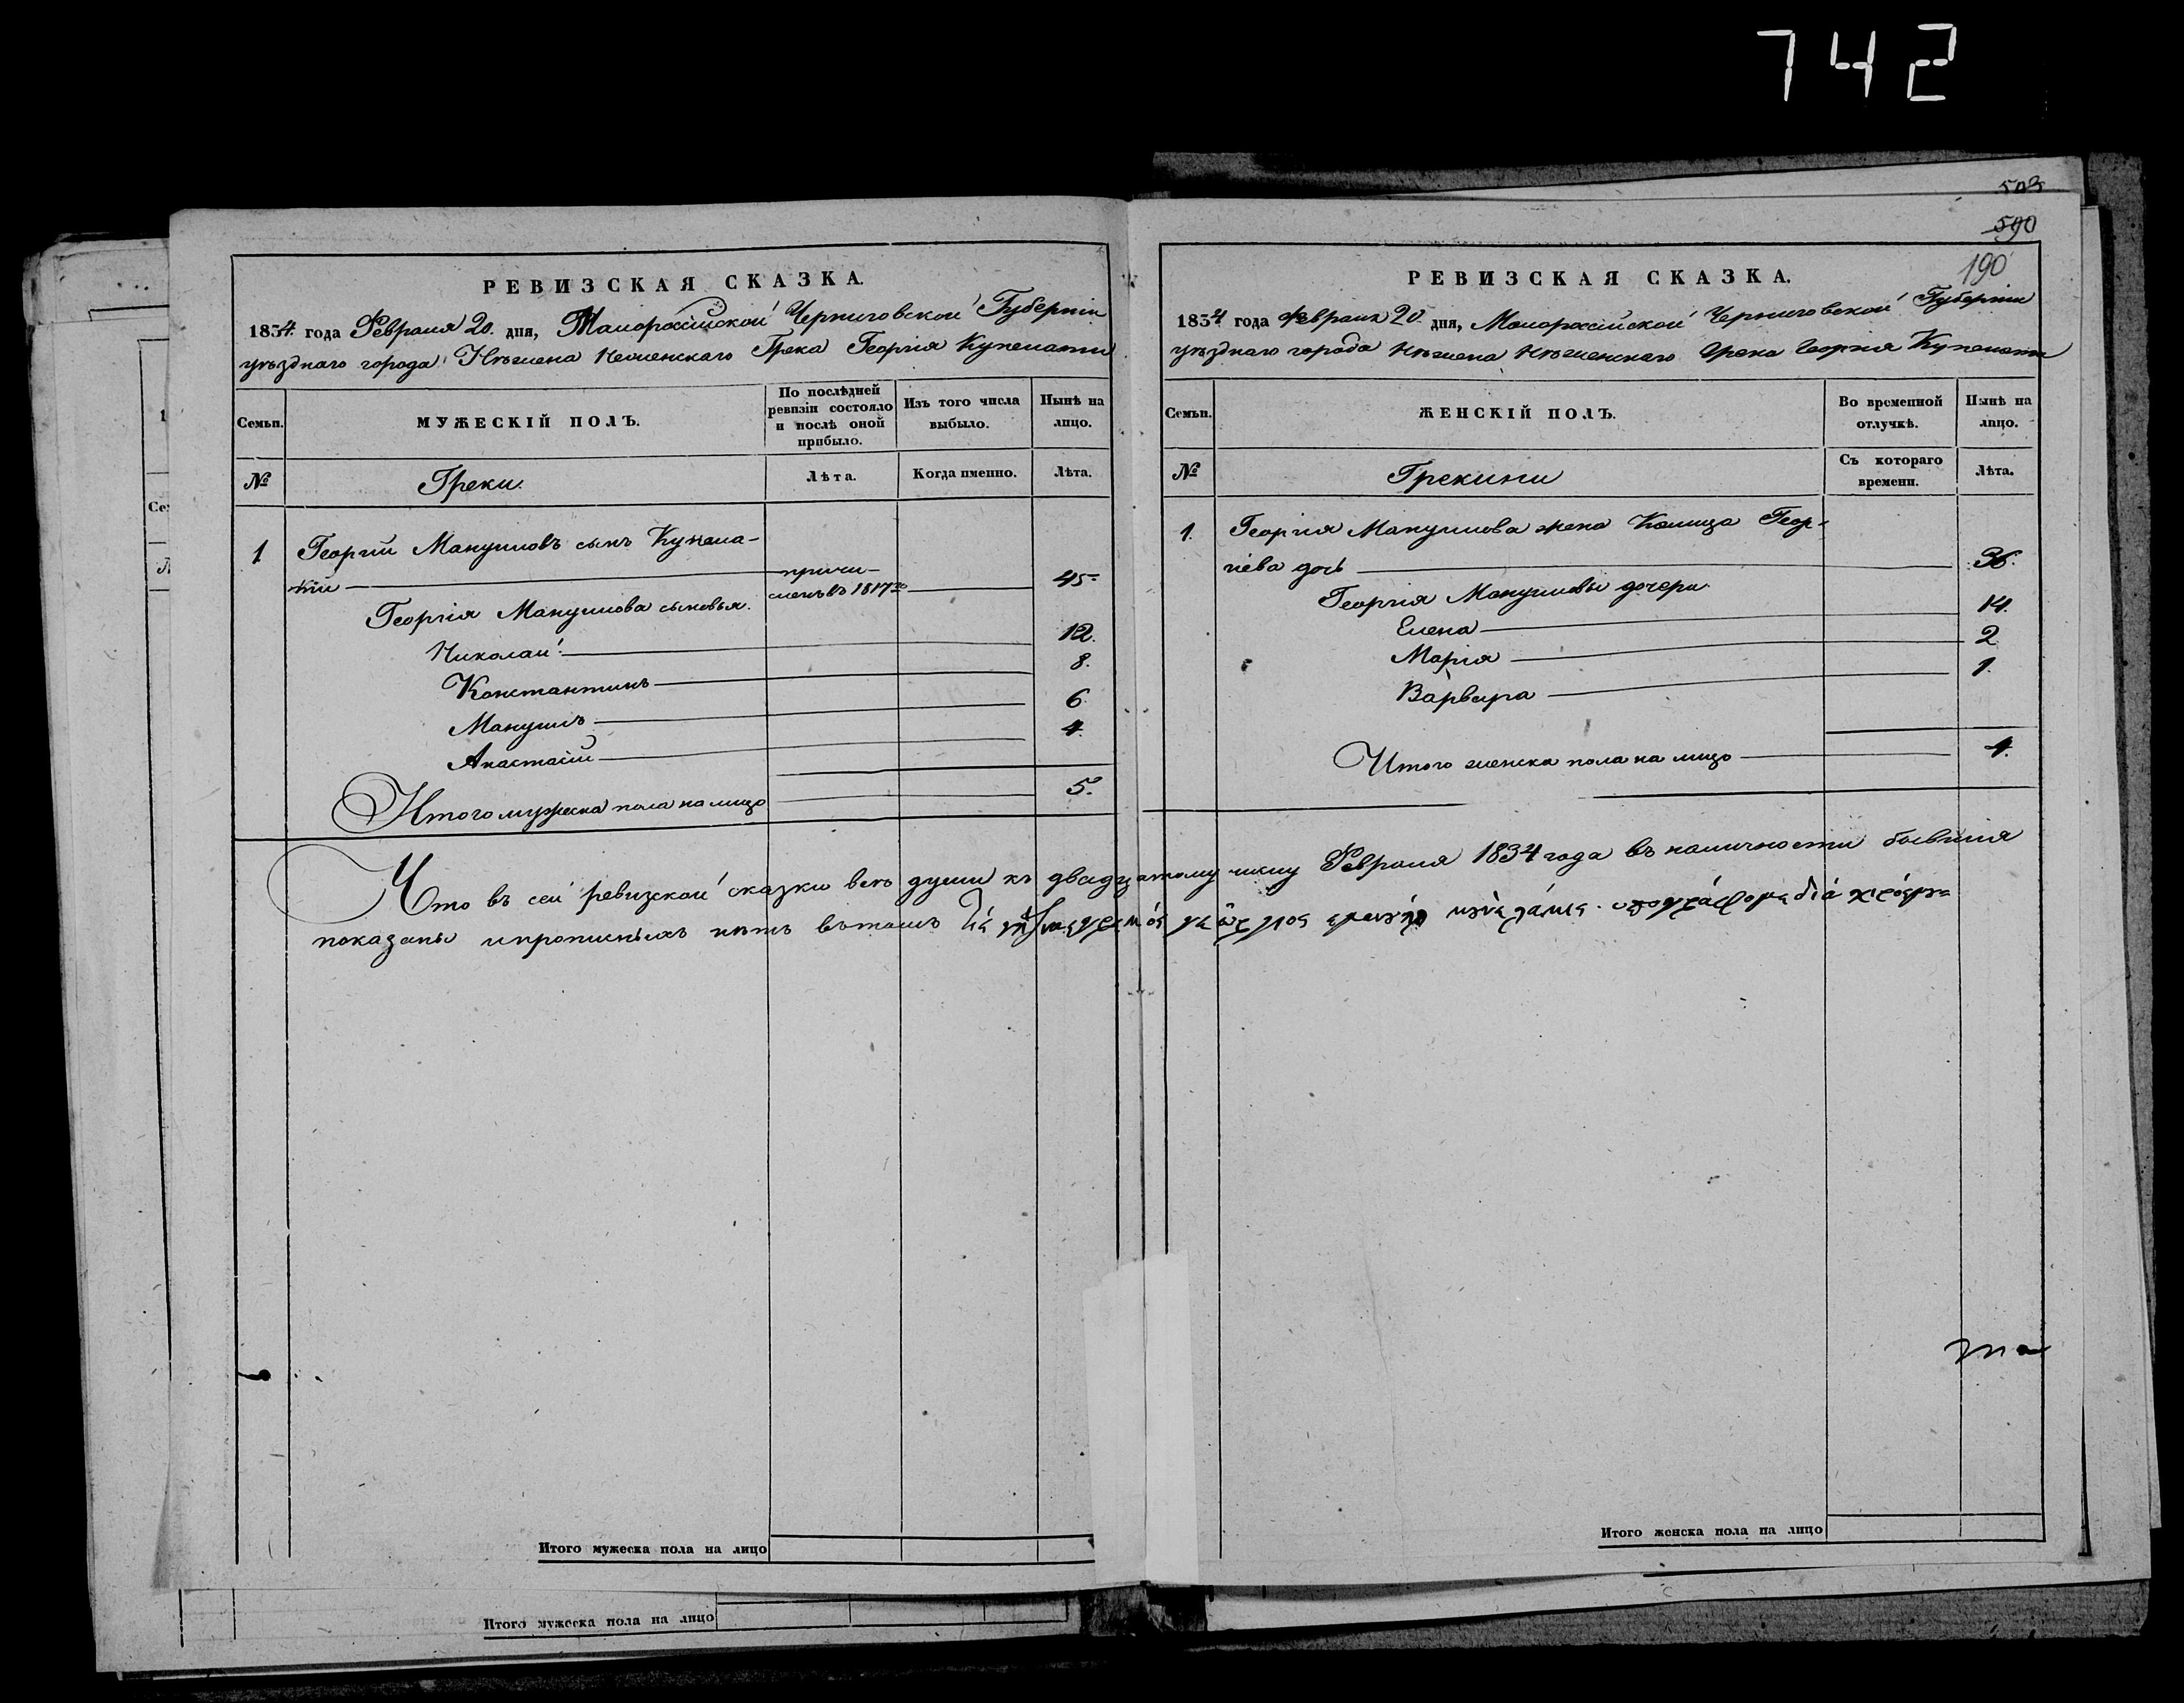 742
503
590
190
РЕВИЗСКАЯ СКАЗКА.
1834 года Февраля 20 дня, Малоросійской Черниговской Губерніи
уѣзднаго города Нѣжена Неженскаго Грека Георгія
Семьи.
МУЖЕСКІЙ ПОЛЪ.
По послѣдней ревизіи состояло и послѣ оной прибыло.
Изъ того числа выбыло.
Нынѣ на лицо.
№
Греки
Лѣта.
Когда именно.
Лѣта.
1 Георгій Мануиловъ сынъ
причи-
сленъ въ 1817 45
Георгія Мануилова сыновья.
Николай 12.
Константинъ 8.
Мануилъ 6
Анастасій 4.
Итого мужеска пола на лицо 5.
РЕВИЗСКАЯ СКАЗКА.
1834 года Февраля 20 дня, Малоросійской Черниговской Губерніи
уѣзднаго города Нѣжена Нѣженскаго Грека Георгія
Семьи.
ЖЕНСКІЙ ПОЛЪ.
Во временной отлучкѣ.
Нынѣ на лицо.
№
Грекини
Съ котораго времени.
Лѣта.
1. Георгія Мануилова жена Геор-
гіева дочь
Георгія Мануиловы дочери
Елена 14.
Марія 2
Варвара 1.
Итого женска пола на лицо 4.
Что въ сей ревизской сказки всѣ души къ двадцатому числу Февраля 1834 года въ наличности бывшія
показаны и прописныхъ нѣтъ въ томъ
Итого мужеска пола на лицо
Итого женска пола на лицо
Итого мужеска пола на лицо